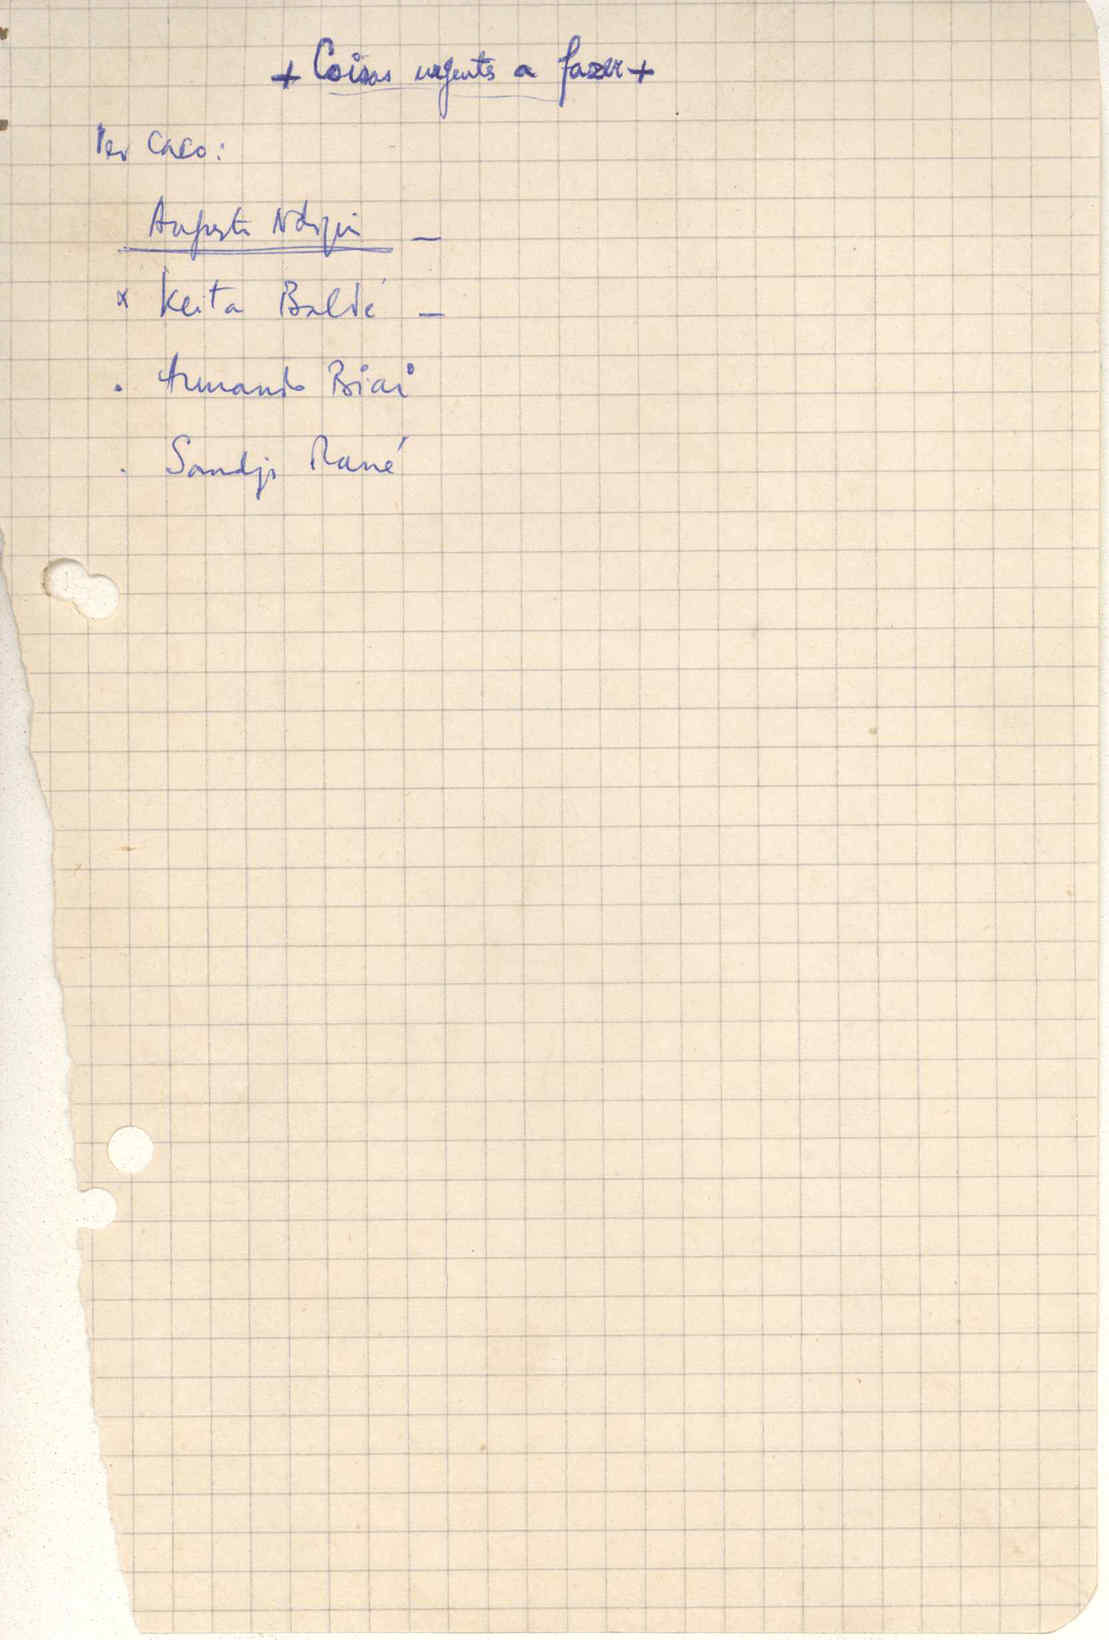 + Coisas urgentes a fazer +
Ver caso:
Augusto —
x Keita Baldé —
. Armando Biai
. Sandji Mané